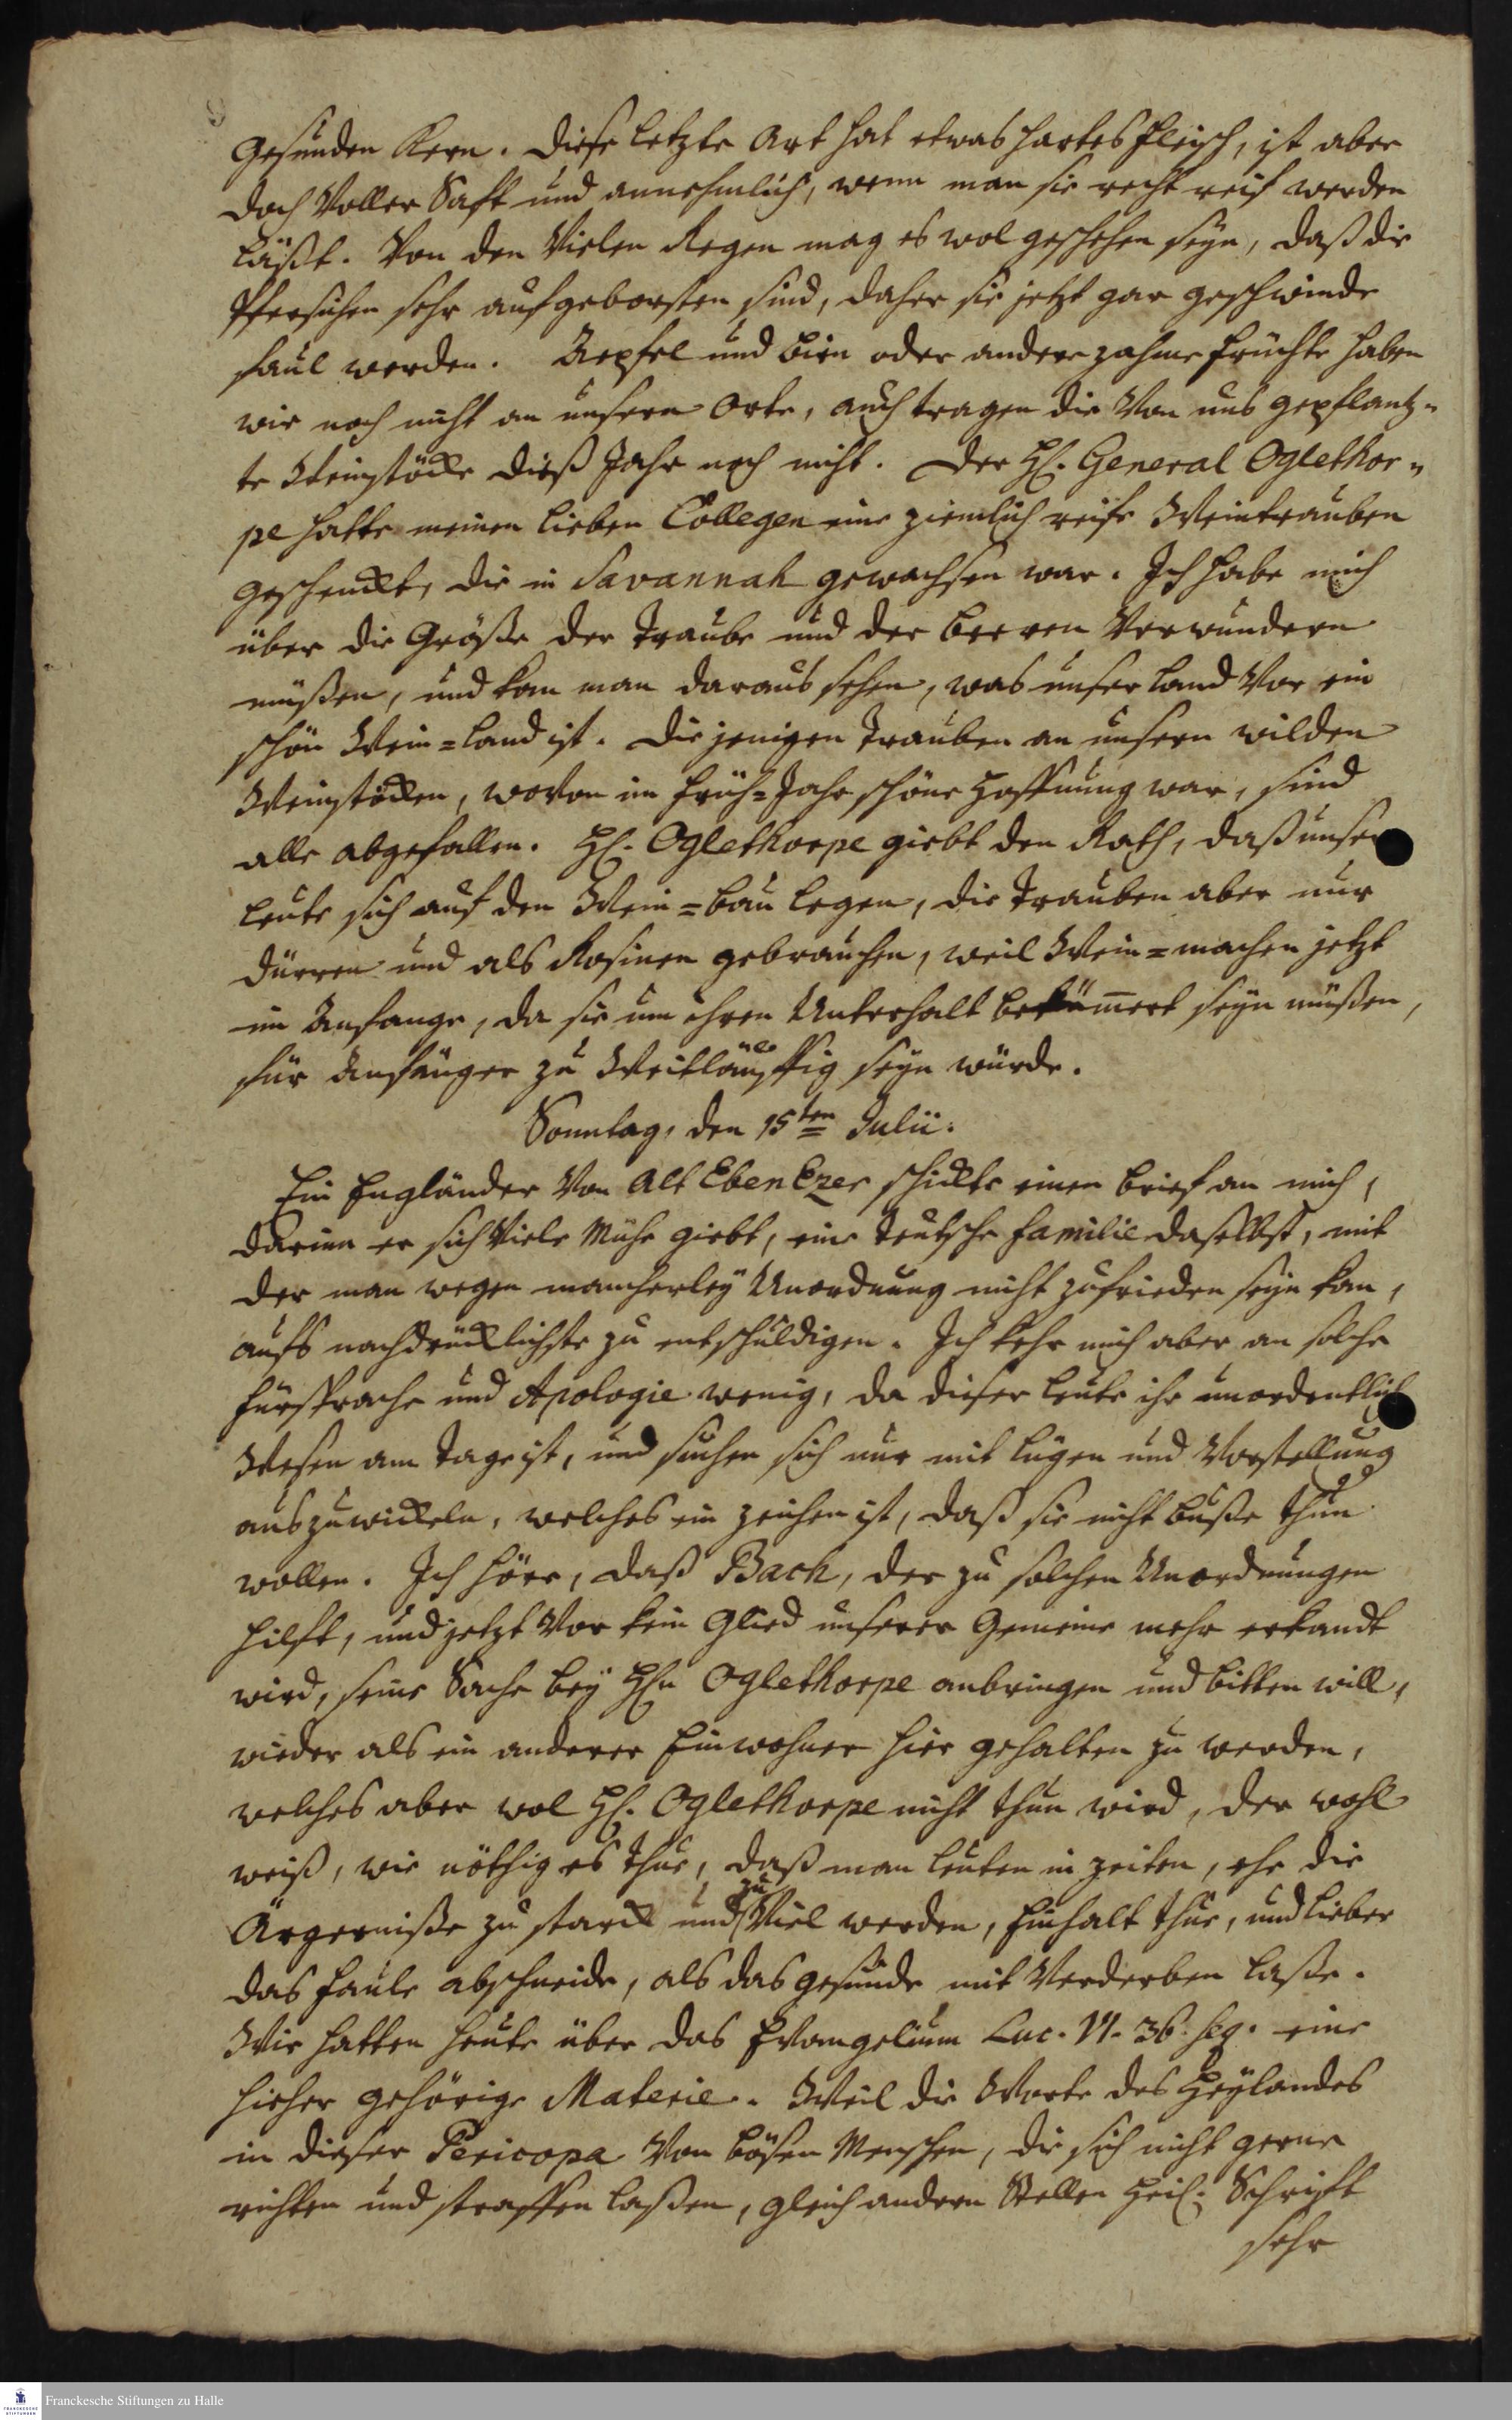 gesunden Kern. Diese letzte Art hat etwas hartes Fleisch, ist aber
doch voller Saft und annehmlich, wenn man sie recht reif werden
läßt. Von den vielen Regen mag es wol geschehen seyn, daß die
Pfersichen sehr aufgeborsten sind, daher sie jetzt gar geschwinde
faul werden. Aepfel und Birn oder andere zahme Früchte haben
wir noch nicht an unserm Orte, auch tragen die von uns gepflantz-
te Weinstöcke dieß Jahr noch nicht. Der H. General Oglethor-
pe hatte meinem lieben Collegen eine ziemlich reife Weintrauben
geschenckt, die in Savannah gewachsen war. Ich habe mich
über die Größe der Traube und der Beeren verwundern
müßen, und kan man daraus sehen, was unser Land vor ein
schön Wein=Land ist. Diejenigen Trauben an unsern wilden
Weinstöcken, wovon im Früh=Jahr schöne Hoffnung war, sind
alle abgefallen. H. Oglethorpe giebt den Rath, daß unsere
Leute sich auf den Wein=bau legen, die Trauben aber nur
dürren und als Rosinen gebrauchen, weil Wein=machen jetzt
im Anfange, da sie um ihren Unterhalt bekümert seyn müßen,
für Anfänger zu weitläufftig seyn würde.
Sonntag, den 15ten Julii.
Ein Engländer von Alt Ebenezer schickte einen Brief an mich,
darinn er sich viele Mühe giebt, eine teutsche Familie daselbst, mit
der man wegen mancherley Unordnung nicht zufrieden seyn kan,
aufs nachdrücklichste zu entschuldigen. Ich kehre mich aber an solche
Fürsprache und Apologie wenig, da dieser Leute ihr unordentlich
Wesen am Tage ist, und suchen sich nur mit Lügen und Vorstellung
auszuwickeln, welches ein Zeichen ist, daß sie nicht Buße thun
wollen. Ich höre, daß Bach, der zu solchen Unordnungen
hilft, und jetzt vor kein Glied unserer Gemeine mehr erkandt
wird, seine Sache bey Hn Oglethorpe anbringen und bitten will,
wieder als ein anderer Einwohner hier gehalten zu werden,
welches aber wol H. Oglethorpe nicht thun wird, der wohl
weiß, wie nöthig es thue, daß man Leuten in Zeiten, ehe die
Ärgerniße zu starck und zu viel werden, Einhalt thue, und lieber
das faule abschneide, als das gesunde mit verderben laße.
Wir hatten heute über das Evangelium Luc. VI. 36. seq. eine
hieher gehörige Materie. Weil die Worte des Heylandes
in dieser Pericopa von bösen Menschen, die sich nicht gerne
richten und straffen laßen, gleich andern Stellen Heil. Schrifft
sehr
Franckesche Stiftungen zu Halle